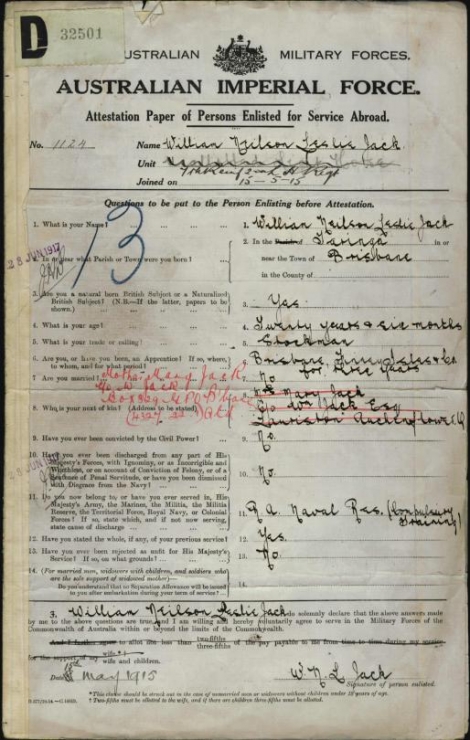 D
32501
AUSTRALIAN MILITARY FORCES.
AUSTRALIAN IMPERIAL FORCE.
Attestation Paper of Persons Enlisted for Service Abroad.
No. 1124 Name William Neilson Leslie Jack
Unit
Joined on 15-5-15
Questions to be put to the Person Enlisting before Attestation.
13
23 JUN 1917
1. What is your Name? 1. William Neilson Leslie Jack
2. In or near what Parish or Town were you born? 2. In the Parish of Taringa in or
near the Town of Brisbane
in the County of
3. Are you a natural born British Subject or a Naturalized
British Subject? (N.B.—If the latter, papers to be
shown.) 3. Yes
4. What is your age? 4. Twenty years & six months
5. What is your trade or calling? 5. Stockman
6. Are you, or have you been, an Apprentice? If so, where,
to whom, and for what period? 6. Brisbane
for three years
7. Are you married? 7. No
Mother Mary Jack
8. Who is your next of kin? (Address to be stated) 8. Mrs Mary Jack
C/o Wm Jack Esq
9. Have you ever been convicted by the Civil Power? 9. No
10. Have you ever been discharged from any part of His
Majesty's Forces, with Ignominy, or as Incorrigible and
Worthless, or on account of Conviction of Felony, or of a
Sentence of Penal Servitude, or have you been dismissed
with Disgrace from the Navy? 10. No.
11. Do you now belong to, or have you ever served in, His
Majesty's Army, the Marines, the Militia, the Militia
Reserve, the Territorial Force, Royal Navy, or Colonial
Forces? If so, state which, and if not now serving,
state cause of discharge 11. R.A. Naval Res. (Compulsory
Training)
12. Have you stated the whole, if any, of your previous service? 12. Yes.
13. Have you ever been rejected as unfit for His Majesty's
Service? If so, on what grounds? 13. No.
14. (For married men, widowers with children, and soldiers who
are the sole support of widowed mother)—
Do you understand that no Separation Allowance will be issued
to you after embarkation during your term of service? 14.
I, William Neilson Leslie Jack do solemnly declare that the above answers made
by me to the above questions are true, and I am willing and hereby voluntarily agree to serve in the Military Forces of the
Commonwealth of Australia within or beyond the limits of the Commonwealth.
And I further agree to allot not less than two-fifths three-fifths of the pay payable to me from time to time during my service
for the support of my wife wife and children.
Date May 1915 W. N. L. Jack
Signature of person enlisted.
* This clause should be struck out in the case of unmarried men or widowers without children under 18 years of age.
† Two-fifths must be allotted to the wife, and if there are children three-fifths must be allotted.